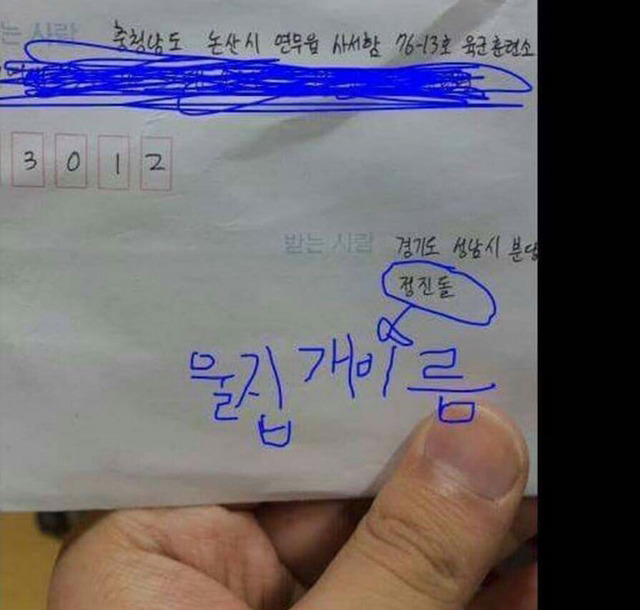 는 사람 충청남도 논산시 연무읍 사서함 76-13호 육군훈련소
3012
받는 사람 경기도 성남시 분당
정진돌
울집 개이름